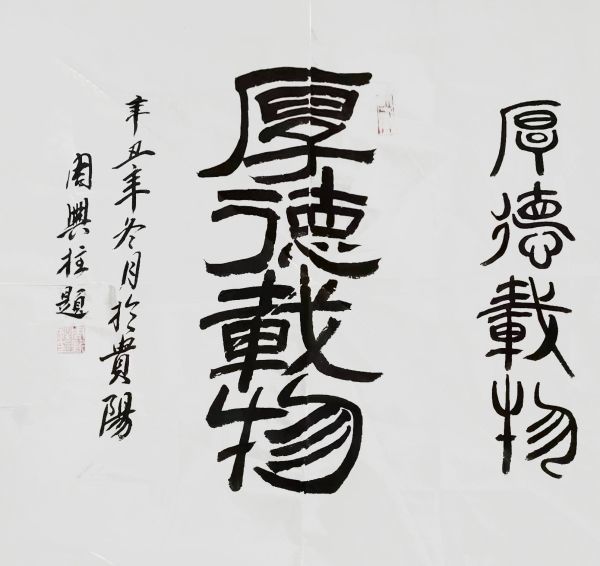 厚德載物
厚德載物
辛丑年冬月於貴陽
周興柱題